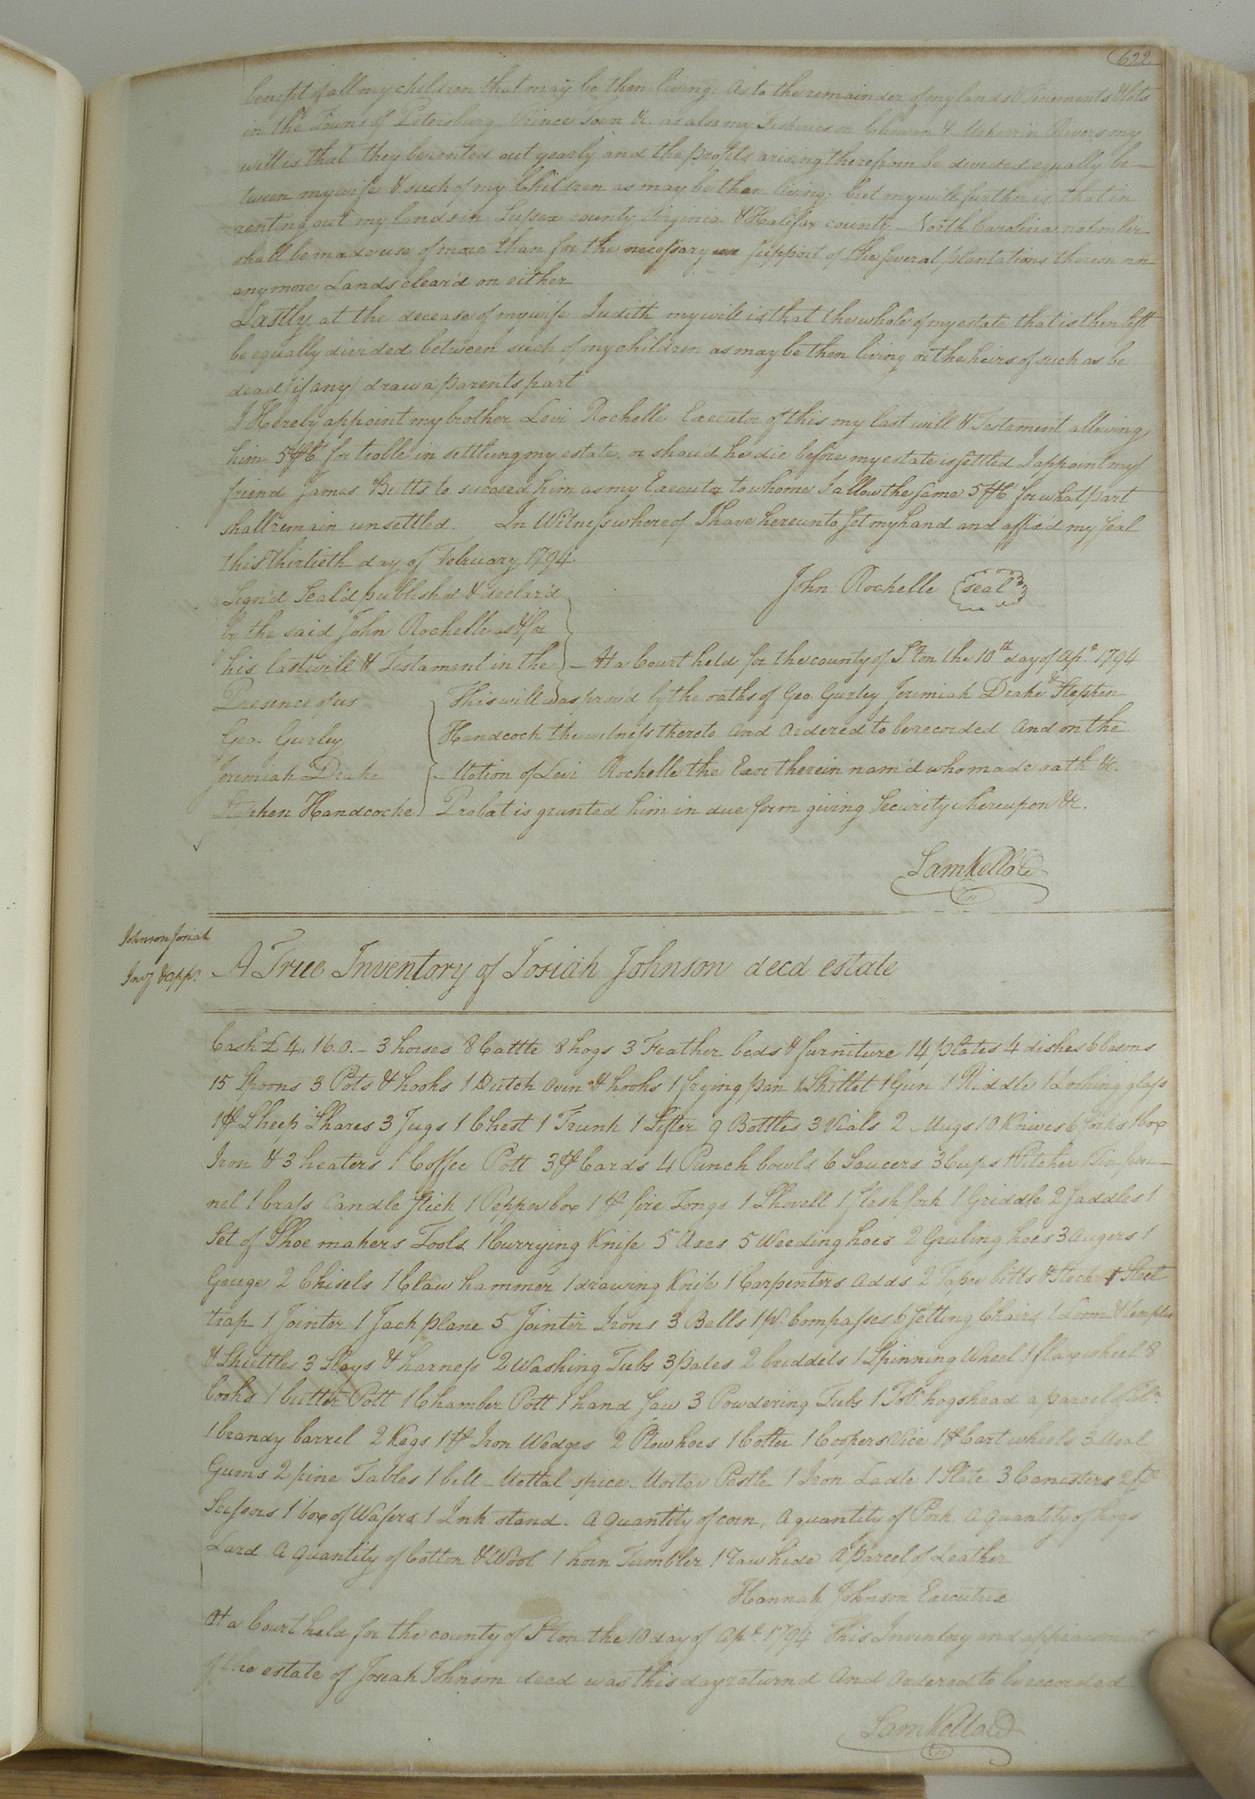 622
benefit of all my children that may be then living. As to the remainder of my lands Tenements & Lots
in the Towns of Petersburg Princeton &c. as also my Fisheries on Chowan & Meherrin Rivers my
will is that they be rented out yearly and the profits arising therefrom be divided equally be-
tween my wife & such of my Children as may be then living; but my will further is that in
renting out my lands in Sussex county Virginia & Halifax county North Carolina no timber
shall be made use of more than for the necessary support of the several plantations thereon nor
any more Lands clear'd on either
Lastly at the decease of my wife Judith my will is that the whole of my estate that is then left
be equally divided between such of my children as may be then living or the heirs of such as be
dead (if any) draw a parents part
I Hereby appoint my brother Levi Rochelle Executor of this my last will & Testament allowing
him 5 for troble in settling my estate. or shou'd he die before my estate is settled I appoint my
friend James Butts to succeed him as my Executor to whome I allow the same 5 for what part
shall remain unsettled. In Witness whereof I have hereunto set my hand and affix'd my seal
this Thirtieth day of February 1794
John Rochelle (seal)
Sign'd Seal'd publish'd & declar'd
by the said John Rochelle as & for
his last will & Testament in the
Presence of us
Geo. Gurley
Jeremiah Drake
Stephen Handcocke
At a Court held for the county of S'ton the 10th day of Apl. 1794
This will was prov'd by the oaths of Geo. Gurley Jeremiah Drake & Stephen
Handcock the witness thereto and ordered to be recorded And on the
Motion of Levi Rochelle the Exor therein nam'd who made oath &c.
Probat is granted him in due form giving Security whereupon &c.
Sam Kello CC
Johnson Josiah
Invy & app.
A True Inventory of Josiah Johnson decd estate
Cash £ 4.. 16. 0. - 3 horses 8 Cattle 8 hogs 3 Feather beds & furniture 14 plates 4 dishes 6 basons
15 Spoons 3 Pots & hooks 1 Dutch oven & hooks 1 frying pan 1 Skillet 1 Gun 1 Riddle 1 Looking glass
1 pr Sheep Shares 3 Jugs 1 Chest 1 Trunk 1 Sifter 9 Bottles 3 Vials 2 Mugs 10 Knives 6 forks 1 box
Iron & 3 heaters 1 Coffee Pott 3 pr Cards 4 Punch bowls 6 Saucers 3 Cups 1 Pitcher 1 Tin fun-
nel 1 brass Candle stick 1 Pepper box 1 pr fire Tongs 1 Shovell 1 flesh fork 1 Griddle 2 Saddles 1
Set of Shoe makers Tools 1 Currying Knife 5 Axes 5 Weeding hoes 2 Grubing hoes 3 Augers 1
Gauge 2 Chisels 1 Claw hammer 1 drawing Knife 1 Carpenters Adds 2 Taper bitts & Stock 1 Steel
trap 1 Jointer 1 Jack plane 5 Jointer Irons 3 Bells 1 pr. Compasses 6 setting Chairs 1 Loom & temples
& Shuttles 3 Slays & harness 2 Washing Tubs 3 pales 2 briddels 1 Spinning Wheel 1 flax wheel 8
books 1 butter Pott 1 Chamber Pott 1 hand saw 3 Powdering Tubs 1 Tob. hogshead a parcel of
1 brandy barrel 2 Kegs 1 pr Iron Wedges 2 Plow hoes 1 Colter 1 Coopers Vice 1 pr Cart wheels 3 Meal
Gums 2 pine Tables 1 bell Mettal spice Mortar Pestle 1 Iron Ladle 1 Slate 3 Canisters 2 pr
Scissons 1 box of Wafers 1 Ink stand. A Quantity of corn, A quantity of Pork, A Quantity of hogs
Lard A Quantity of Cotton & Wool 1 horn Tumbler 1 raw hide A parcel of Leather
Hannah Johnson Executrix
At a Court held for the county of S'ton the 10 day of Apl. 1794 This Inventory and appraisment
of the estate of Josiah Johnson decd was this day returnd And Ordered to be recorded
Sam Kello CC